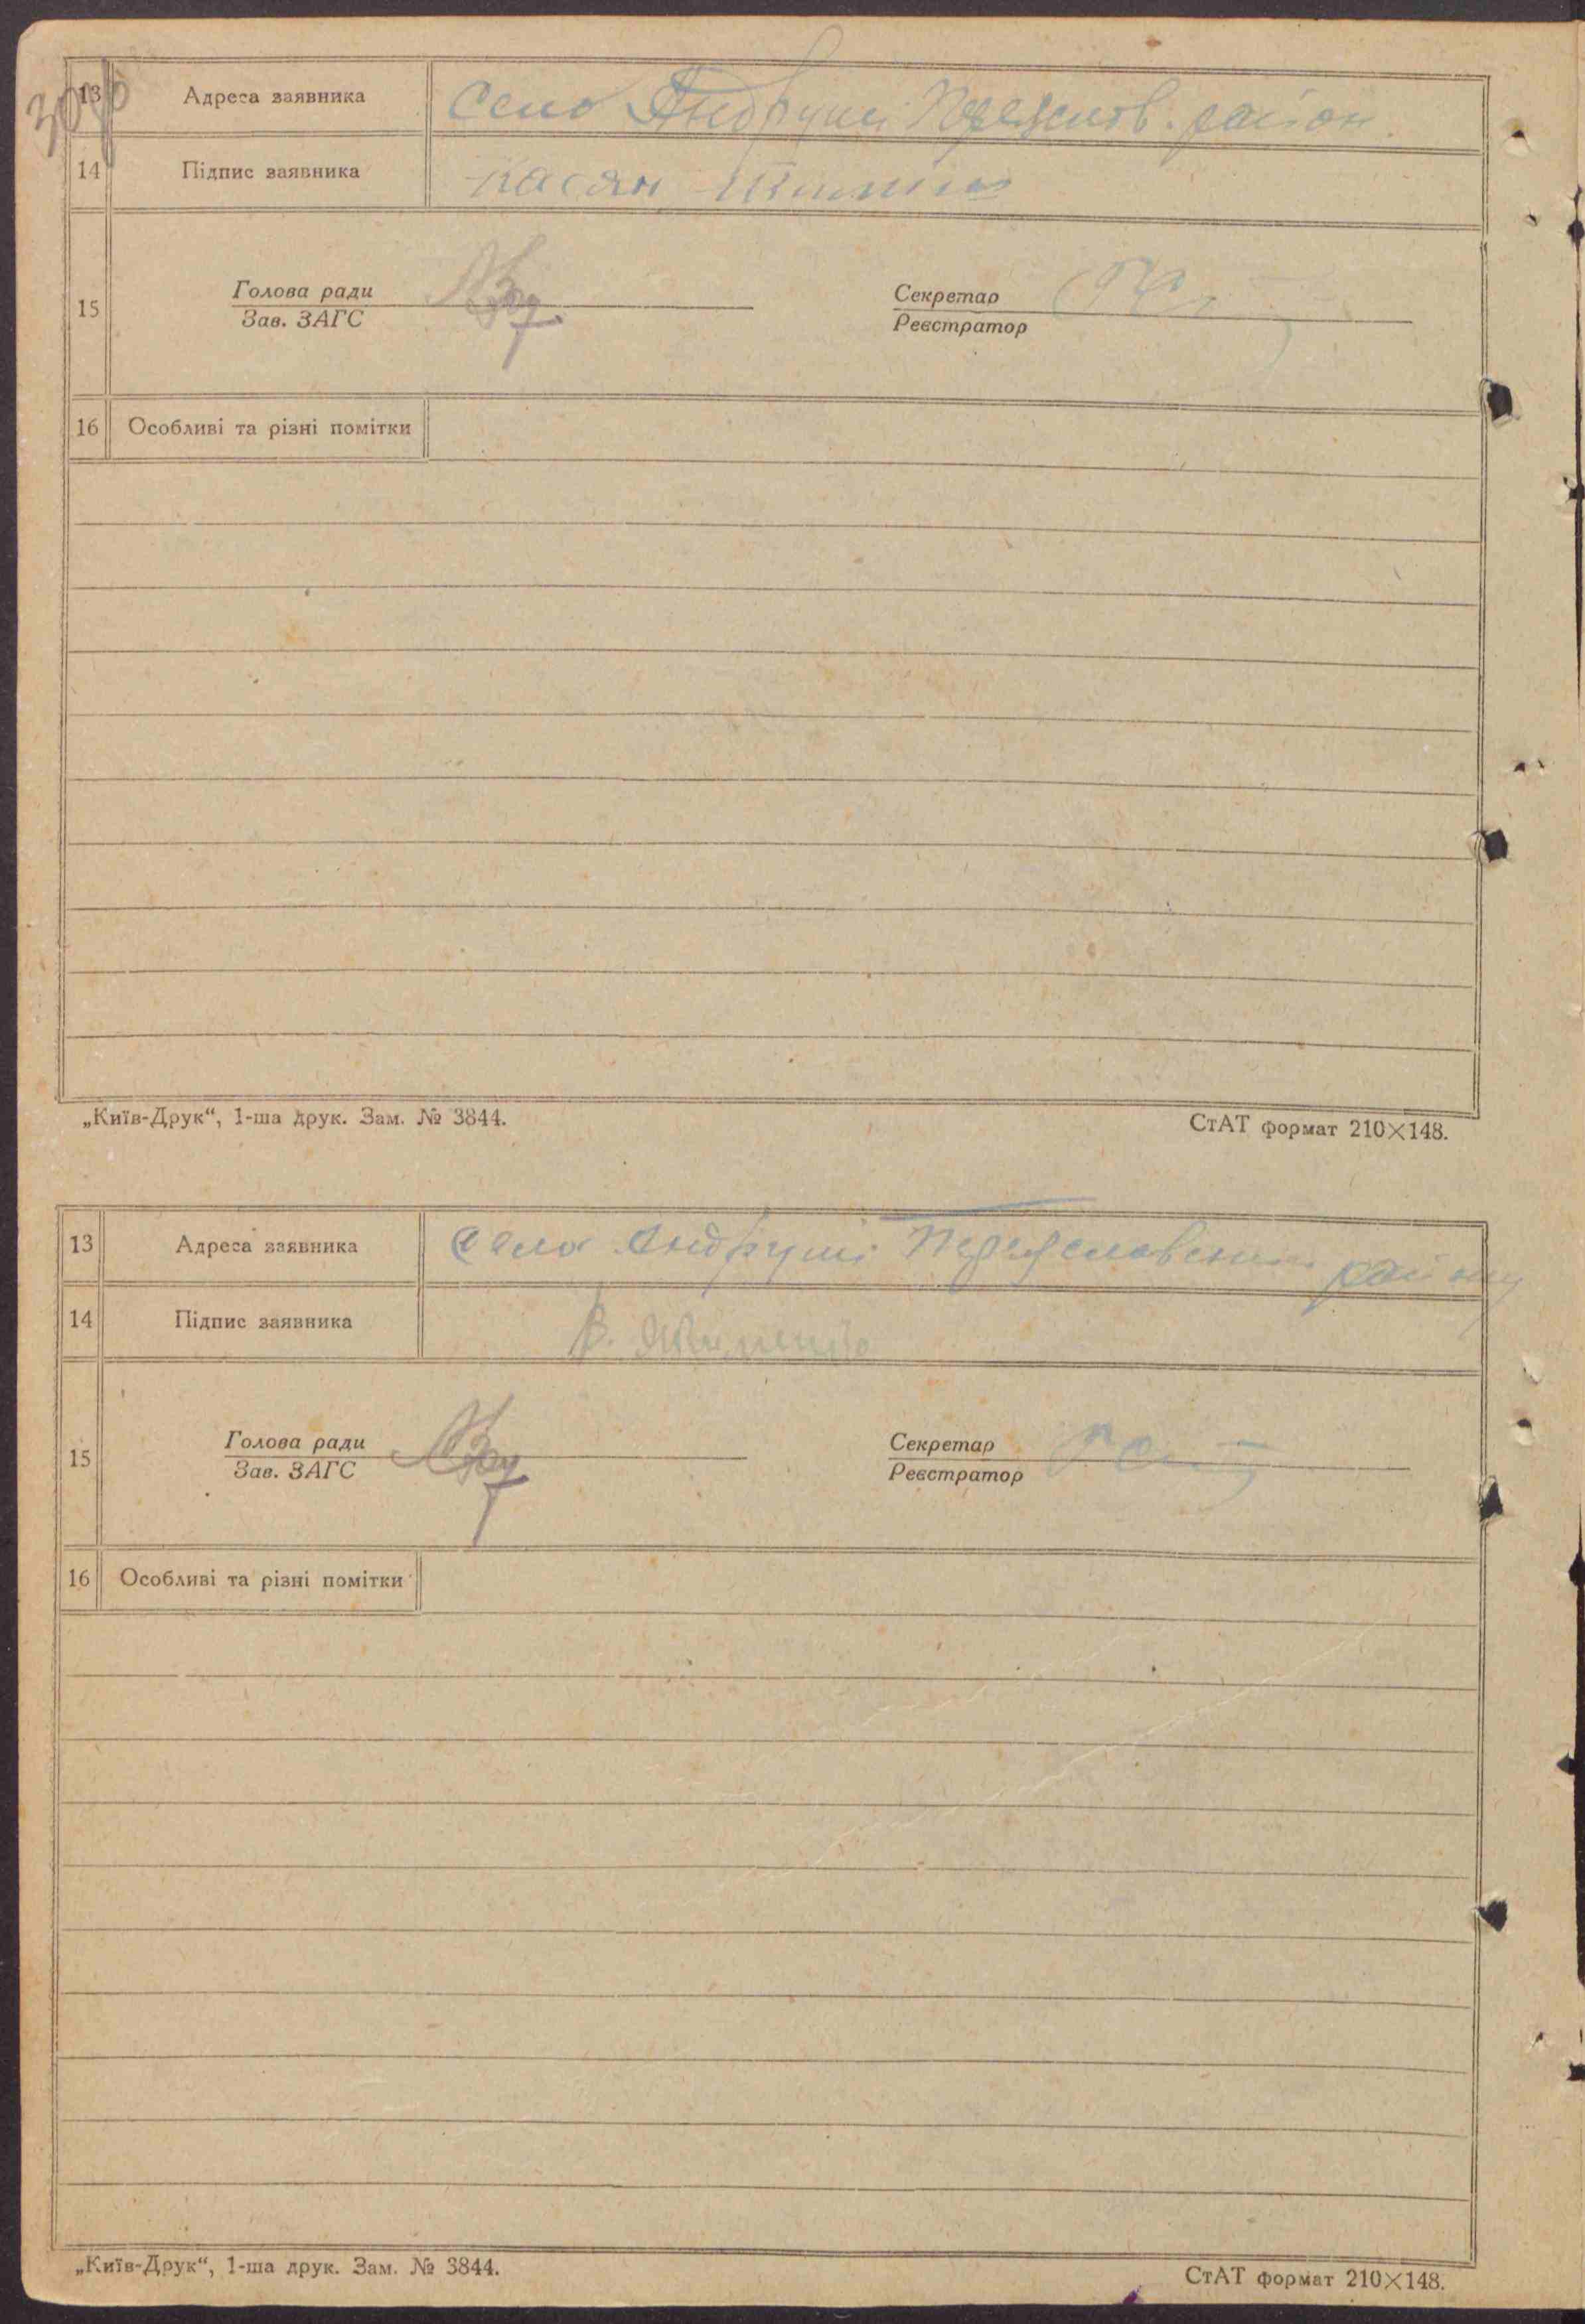 13 Адреса заявника Село Андруші Переяслов. район.
14 Підпис заявника Касян
15 Голова ради Секретар
Зав. ЗАГС Реєстратор
16 Особливі та різні помітки
„Київ-Друк“, 1-ша друк. Зам. № 3844. СтАТ формат 210×148.
13 Адреса заявника село Андруші Переяславський району
14 Підпис заявника
15 Голова ради Секретар
Зав. ЗАГС Реєстратор
16 Особливі та різні помітки
„Київ-Друк“, 1-ша друк. Зам. № 3844. СтАТ формат 210×148.